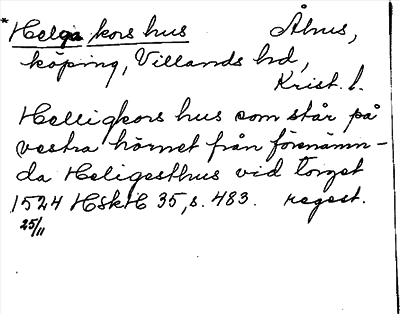 *Helga kors hus Åhus,
köping, Villands hd,
Krist. l.
Helligkors hus som står på
vestra hörnet från förenämn-
da Heligesthus vid torget
1524 HSkH 35, s. 483. regest.
25/11